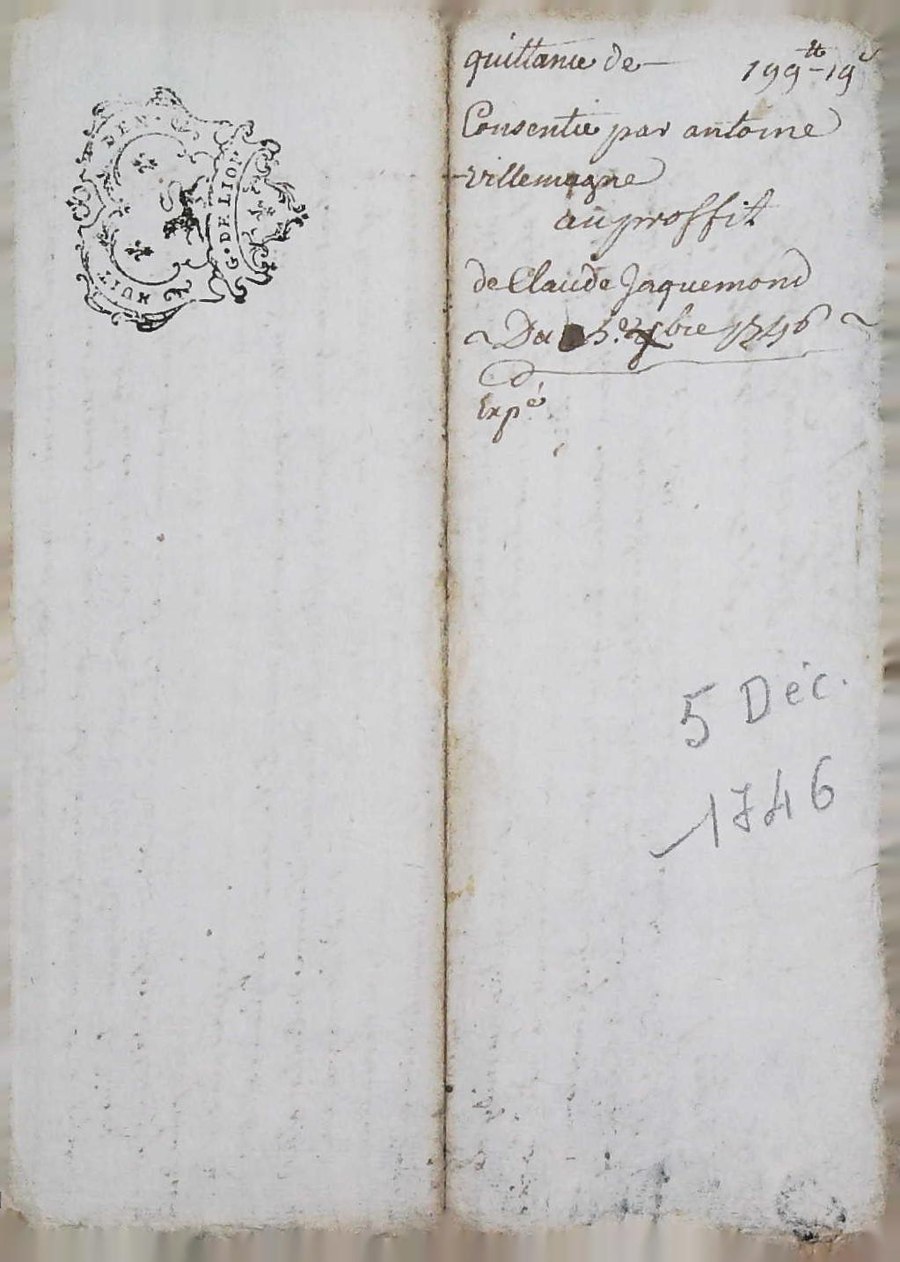 HUIT DEN.
G. DE LION
quittance de 199tt-19s
Consentie par antoine
villemagne
au proffit
de Claude Jaquemond
Du 5e Xbre 1746
Expé
5 Déc.
1746